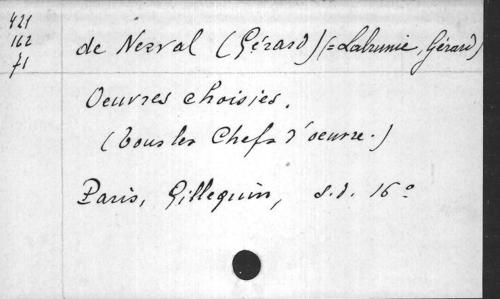 421
162
71
de Nerval (Gérard) (=Labrunie, Gérard)
Oeuvres choisies.
(Tous les Chefs d'oeuvre.)
Paris, Gillequin, s.d. 16°